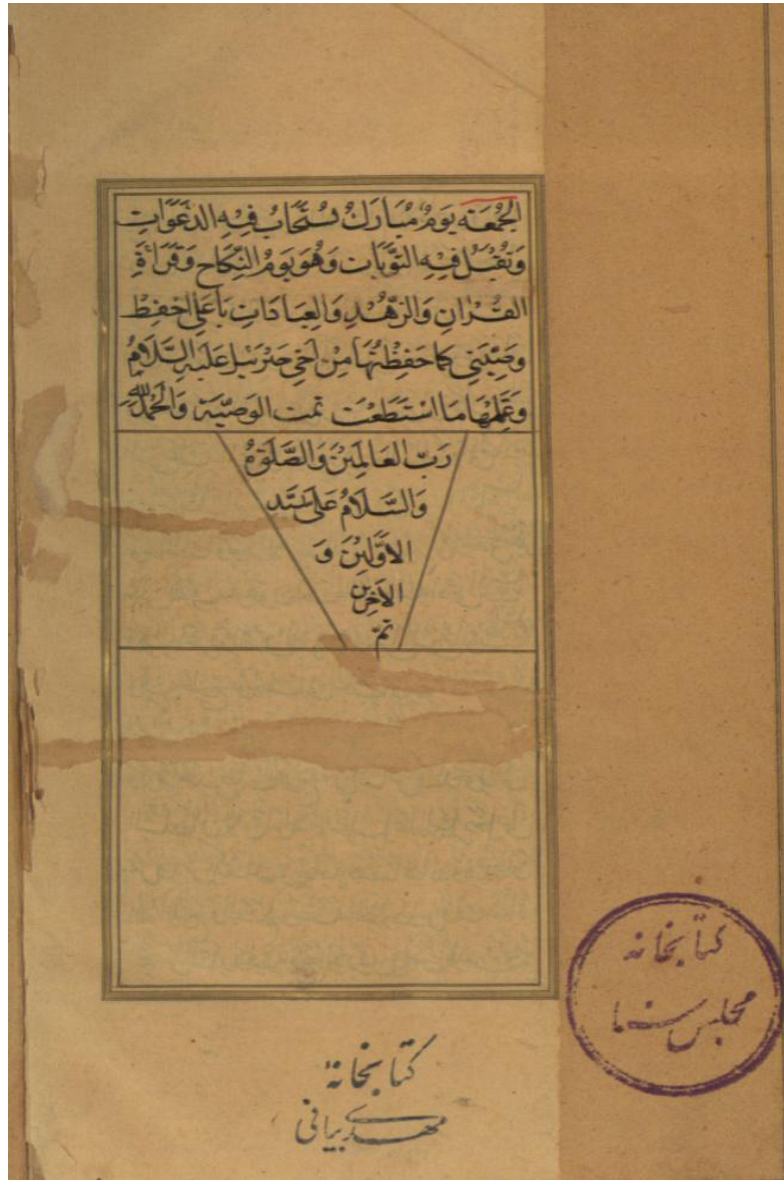 الجُمْعَة يَوْمٌ مُبَارَكٌ تُسْتَجَابُ فِيْهِ الدَّعَوَاتِ
وَتُقْبَلُ فِيْهِ التَّوْبَات وَهُوَ يَوْمُ النِّكَاحِ وَقَرَاءَةِ
القُرْانِ وَالزُّهْدِ وَالعِبَادَاتِ يَا عَلِي احْفِظْ
وَصِيَّتِي كَمَا حَفِظْتُهَا مِنْ اَخِي جَبْرَئِيلَ عَلَيْهِ السَّلَامُ
وَعَلِّمْهَا مَا اسْتَطَعْتَ تمت الوَصِيَّة وَالحَمْدُ لله
رَبِّ العَالَمِيْنَ وَالصَّلٰوةُ
وَالسَّلَامُ عَلَى سَيِّد
الاَوَّلِيْنَ وَ
الاَخِرِيْن
تمّ
كتابخانه
مجلس سنا
كتابخانهٔ
مهدی بیانی